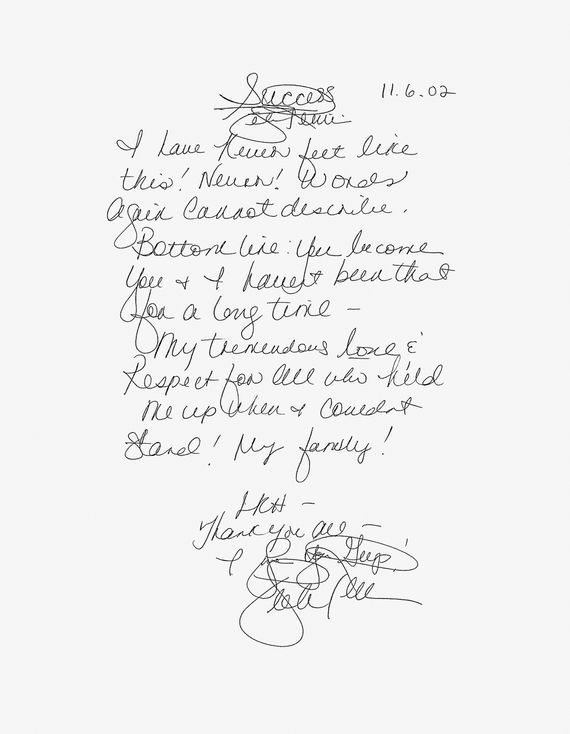 Success 11.6.02
I have Never feet like
this! Never! Words
Again Cannot describe.
Bottom line: You become
You & I haven't been that
for a long time –
My tremendous love &
Respect for All who held
me up when I couldn't
Stand! My family!
LKH –
Thank you all –
I